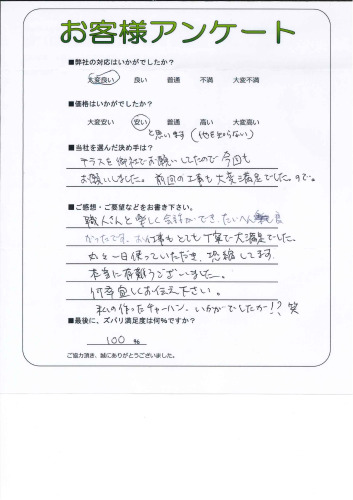 お客様アンケート
■弊社の対応はいかがでしたか?
大変良い 良い 普通 不満 大変不満
■価格はいかがでしたか?
大変安い 安い 普通 高い 大変高い
と思います(他を知らない)
■当社を選んだ決め手は?
テラスを御社でお願いしたので今回も
お願いしました。前回の工事も大変満足でした。ので。
■ご感想・ご要望などをお書き下さい。
職人さんと楽しく会話ができ、たいへん
だったです。お仕事もとても丁寧で大満足でした。
丸々一日使っていただき、恐縮してます。
本当に有難うございました。
何卒宜しくお伝え下さい。
私の作ったチャーハン、いかがでしたかー!?笑
■最後に、ズバリ満足度は何%ですか?
100 %
ご協力頂き、誠にありがとうございました。